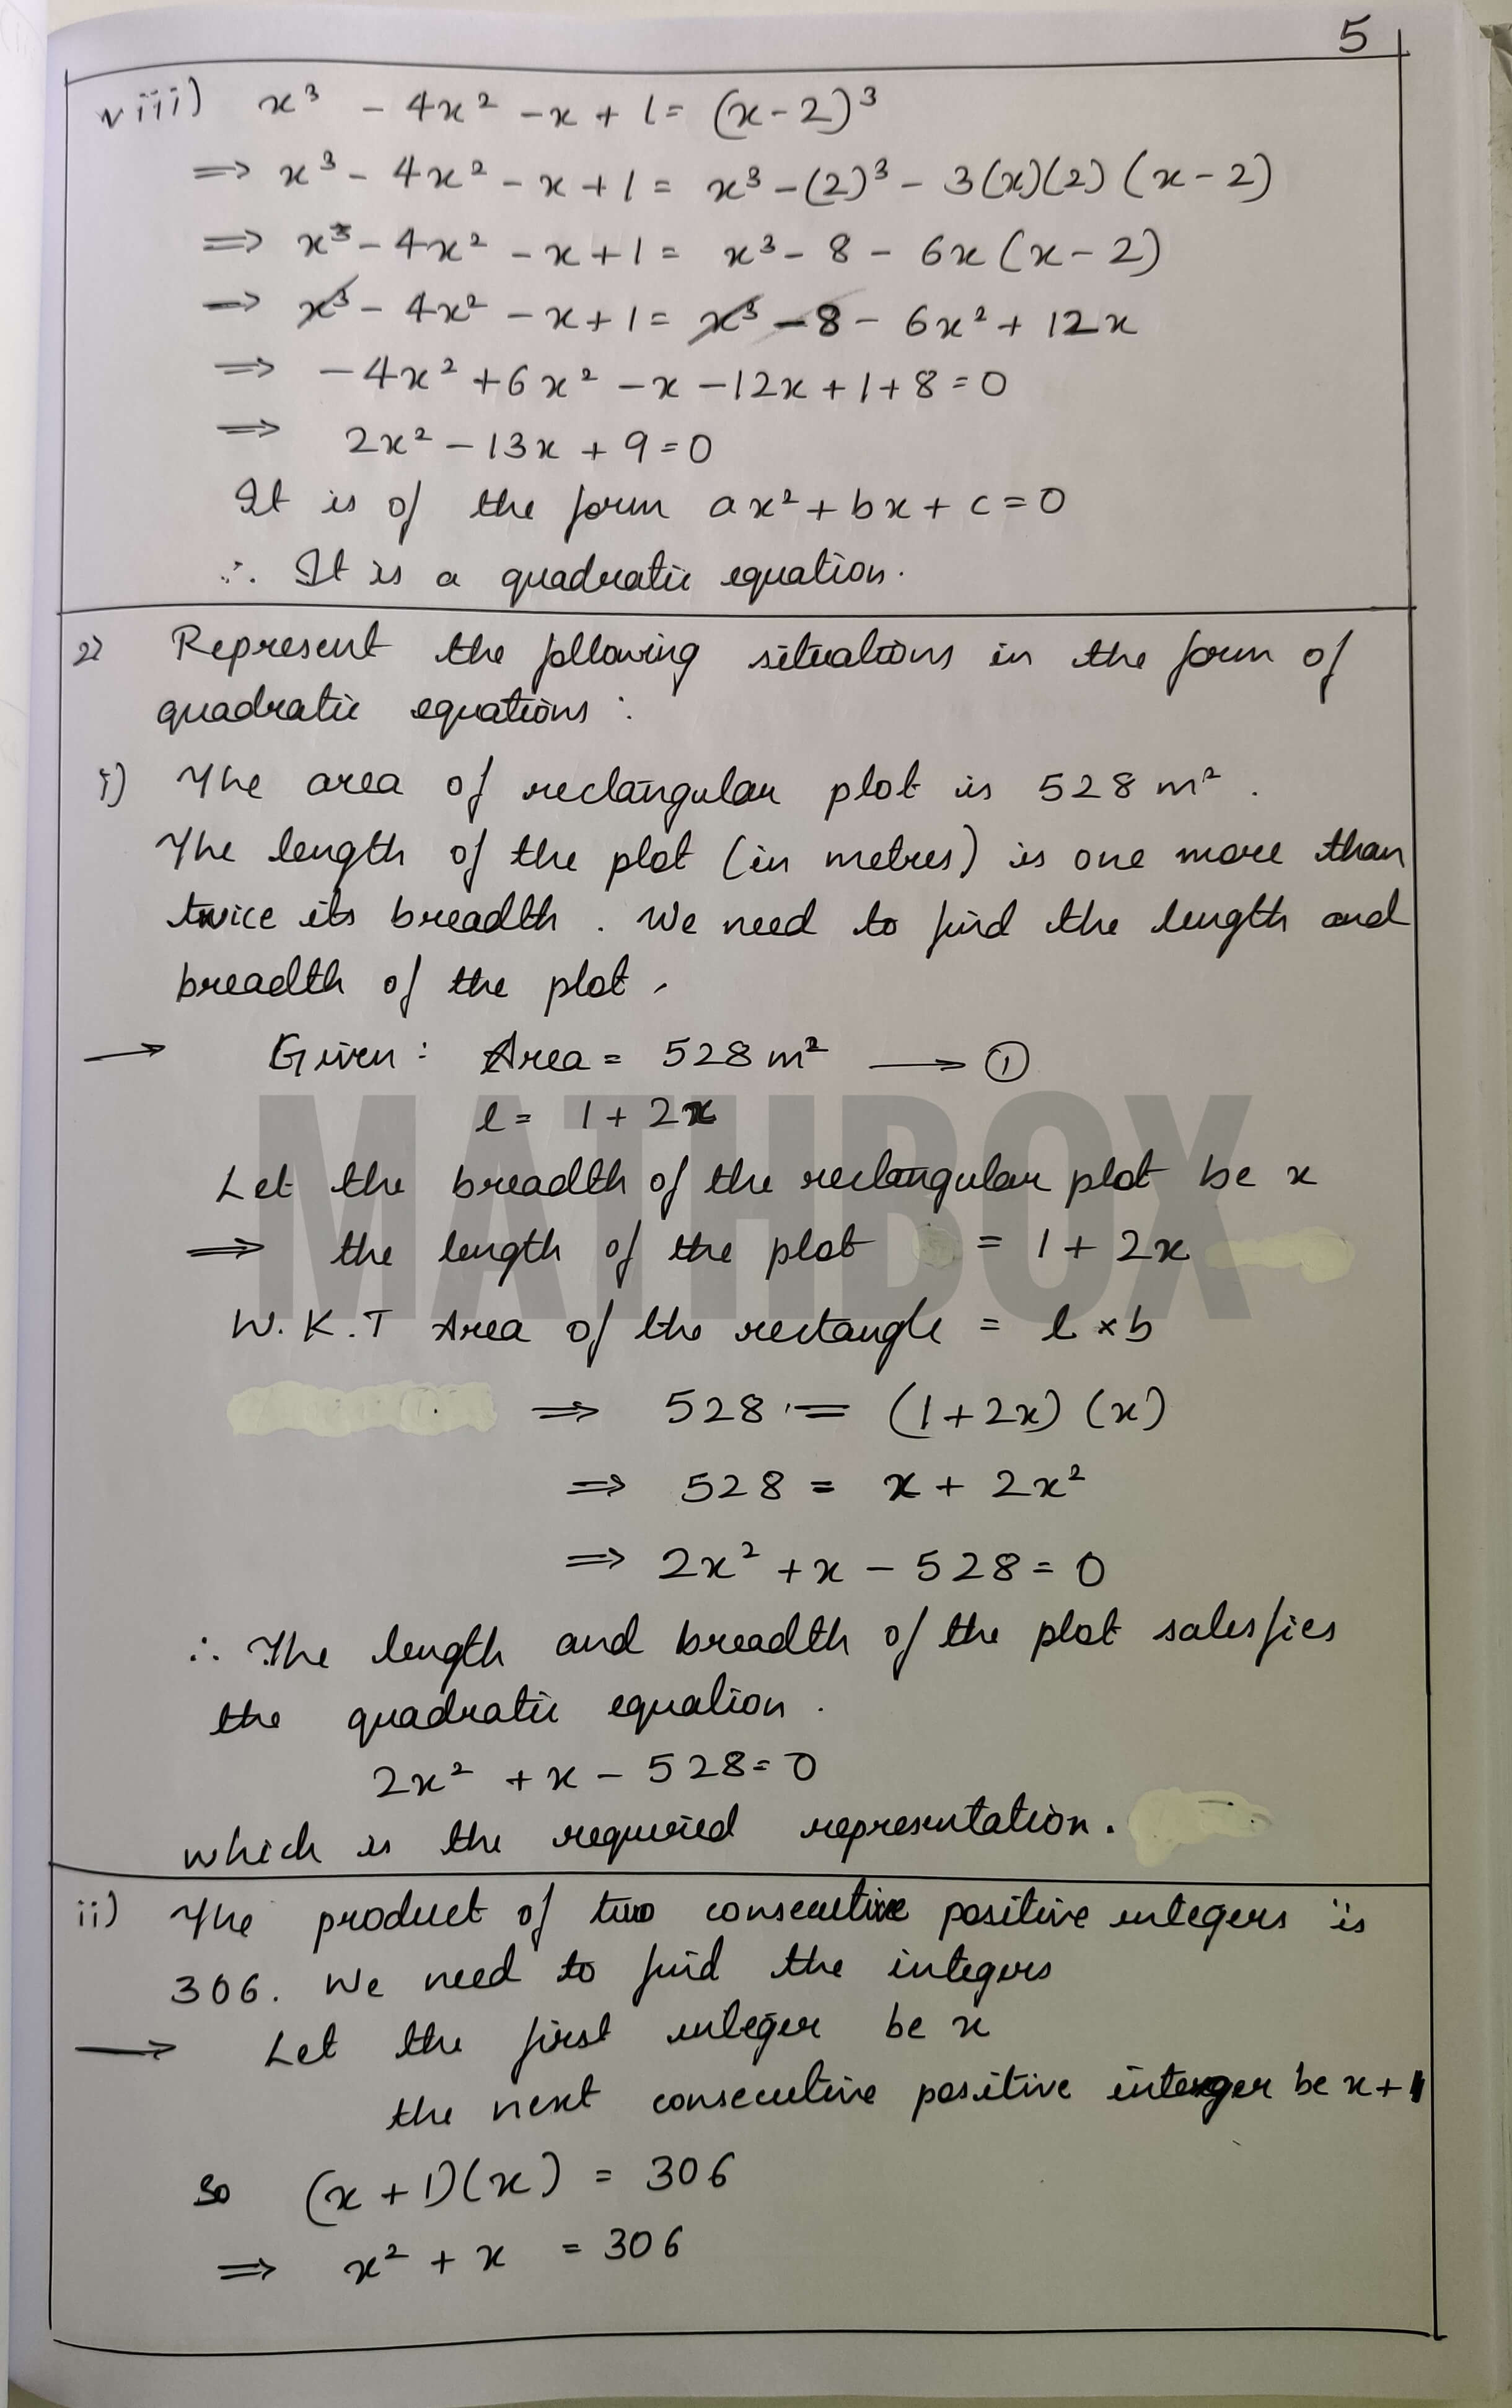 5
viii) x³ - 4x² - x + 1 = (x-2)³
⇒ x³ - 4x² - x + 1 = x³ - (2)³ - 3(x)(2) (x-2)
⇒ x³ - 4x² - x + 1 = x³ - 8 - 6x (x-2)
⇒ x³ - 4x² - x + 1 = x³ - 8 - 6x² + 12x
⇒ -4x² + 6x² - x - 12x + 1 + 8 = 0
⇒ 2x² - 13x + 9 = 0
It is of the form ax² + bx + c = 0
∴ It is a quadratic equation.
2) Represent the following situations in the form of
quadratic equations :
i) The area of rectangular plot is 528 m² .
The length of the plot (in metres) is one more than
twice its breadth . We need to find the length and
breadth of the plot .
→ Given : Area = 528 m² → ①
l = 1 + 2x
Let the breadth of the rectangular plot be x
⇒ the length of the plot = 1 + 2x
MATHBOX
W.K.T Area of the rectangle = l × b
⇒ 528 = (1+2x) (x)
⇒ 528 = x + 2x²
⇒ 2x² + x - 528 = 0
∴ The length and breadth of the plot satesfies
the quadratic equation .
2x² + x - 528 = 0
which is the required representation .
ii) The product of two consecutive positive integers is
306. We need to find the integers
→ Let the first integer be x
the next consecutive positive integer be x+1
So (x+1)(x) = 306
⇒ x² + x = 306